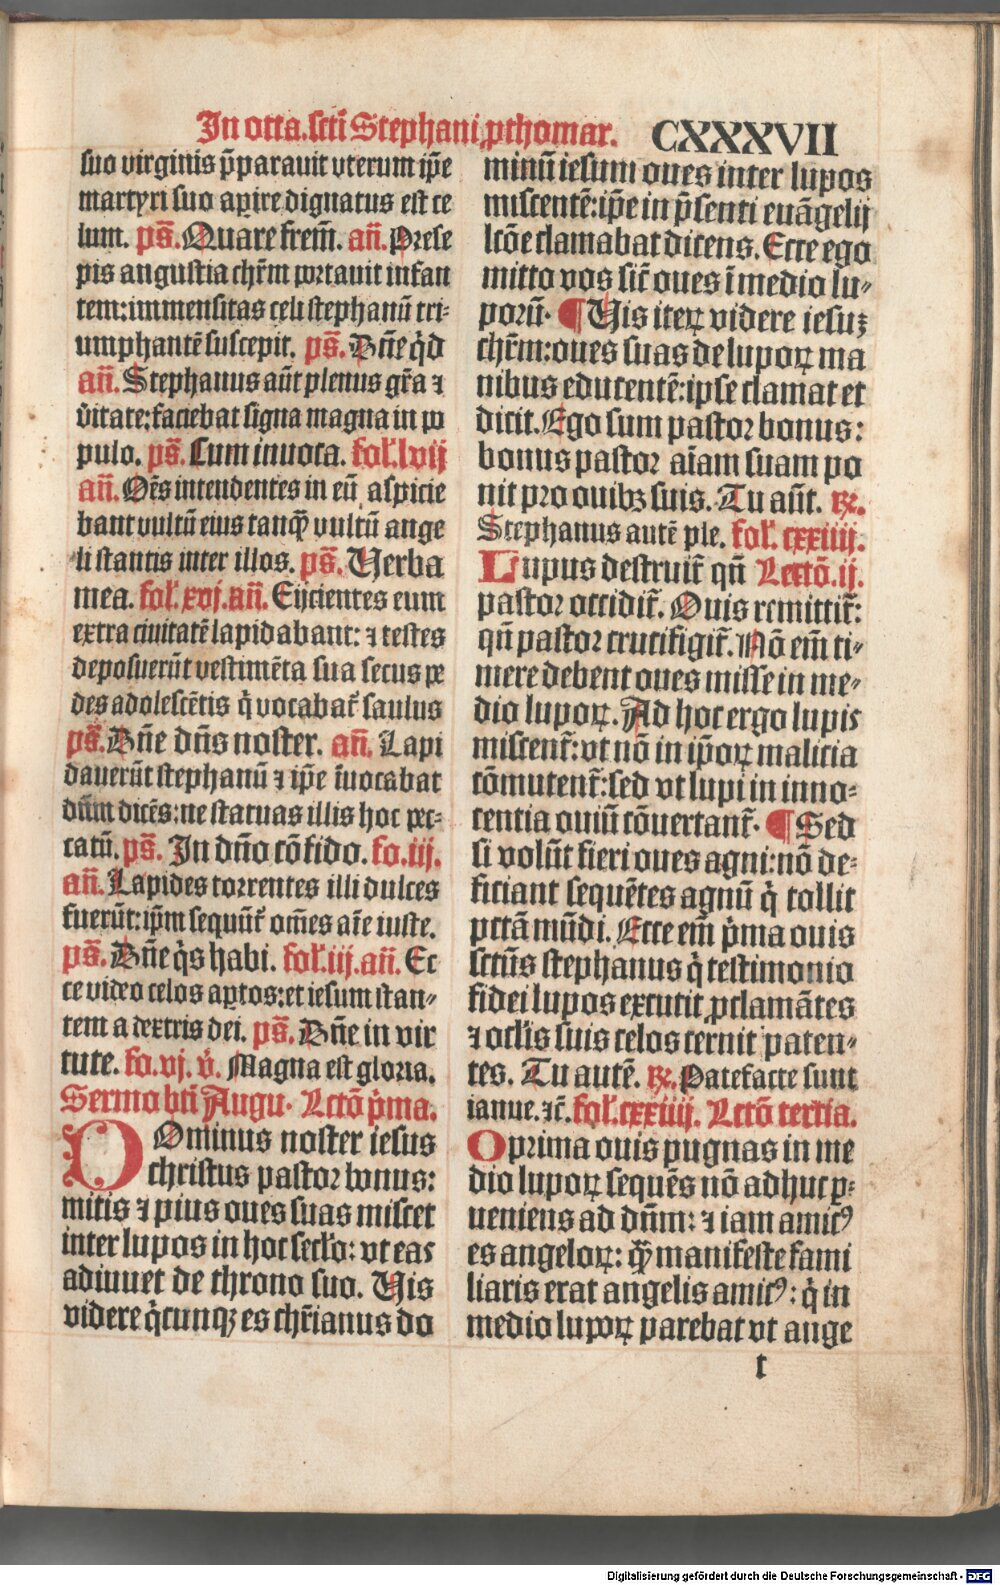 In octa.scti Stephani ꝓthomar. CXXXVII
suo virginis p̄parauit vterum ip̄e
martyri suo aꝑire dignatus est ce
lum. ps̄. Quare frem̄. an̄. Prese
pis angustia chr̄m portauit infan
tem:immensitas celi stephanū tri-
umphantē suscepit. ps̄. Dn̄e q̇d
an̄. Stephanus aūt plenus gr̄a ⁊
v̄itate:faciebat signa magna in po
pulo. ps̄. Cum inuoca. fol̄.lvij
an̄. Oēs intendentes in eū aspicie
bant vultū eius tanqͣ̄ vultū ange
li stantis inter illos. ps̄. Verba
mea. fol̄.xvj.an̄. Eijcientes eum
extra ciuitatē lapidabant: ⁊ testes
deposuerūt vestimēta sua secus pe
des adolescētis q̇ vocabat̄ saulus
ps̄. Dn̄e dn̄s noster. an̄. Lapi
dauerūt stephanū ⁊ ip̄e īuocabat
dūm dicēs:ne statuas illis hoc pec-
catū. ps̄. In dn̄o cōfido. fo.iij.
an̄. Lapides torrentes illi dulces
fuerūt:ip̄m sequūt̄ om̄es aīe iuste.
ps̄. Dn̄e q̇s habi. fol̄.iij.an̄. Ec
ce video celos aꝑtos:et iesum stan-
tem a dextris dei. ps̄. Dn̄e in vir
tute. fo.vj. v̄. Magna est gloria.
Sermo bti Augu. Lctō p̄ma.
DOminus noster iesus
christus pastor bonus:
mitis ⁊ pius oues suas miscet
inter lupos in hoc secl̄o: vt eas
adiuuet de throno suo. Vis
videre q̇cunqꝫ es chr̄ianus do
minū iesum oues inter lupos
miscentē:ip̄e in p̄senti euāgelij
lcōe clamabat dicens. Ecce ego
mitto vos sic̄ oues ī medio lu-
porū. ¶ Vis iteꝝ videre iesuꝫ
chr̄m:oues suas de lupoꝝ ma
nibus educentē:ipse clamat et
dicit. Ego sum pastor bonus:
bonus pastor aīam suam po
nit pro ouibꝫ suis. Tu aūt. ꝶ.
Stephanus autē ple. fol̄. cxxiiij.
Lupus destruit̄ qn̄ Lectō.ij.
pastor occidit̄. Ouis remittit̄:
qn̄ pastor crucifigit̄. Nō em̄ ti-
mere debent oues misse in me-
dio lupoꝝ. Ad hoc ergo lupis
miscent̄: vt nō in ip̄oꝝ malicia
cōmutent̄:sed vt lupi in inno-
centia ouiū cōuertant̄. ¶ Sed
si volūt fieri oues agni:nō de-
ficiant sequētes agnū q̇ tollit
pctā mūdi. Ecce em̄ p̄ma ouis
sctūs stephanus q̇ testimonio
fidei lupos excutit ꝓclamātes
⁊ ocl̄is suis celos cernit paten-
tes. Tu autē. ꝶ. Patefacte sunt
ianue.⁊c̄. fol̄.cxxiiij. Lctō tertia.
O prima ouis pugnas in me
dio lupoꝝ sequēs nō adhuc ꝑ-
ueniens ad dn̄m: ⁊ iam amicꝰ
es angeloꝝ: qͣ̄ manifeste fami
liaris erat angelis amicꝰ: q̇ in
medio lupoꝝ parebat vt ange
t
Digitalisierung gefördert durch die Deutsche Forschungsgemeinschaft - DFG